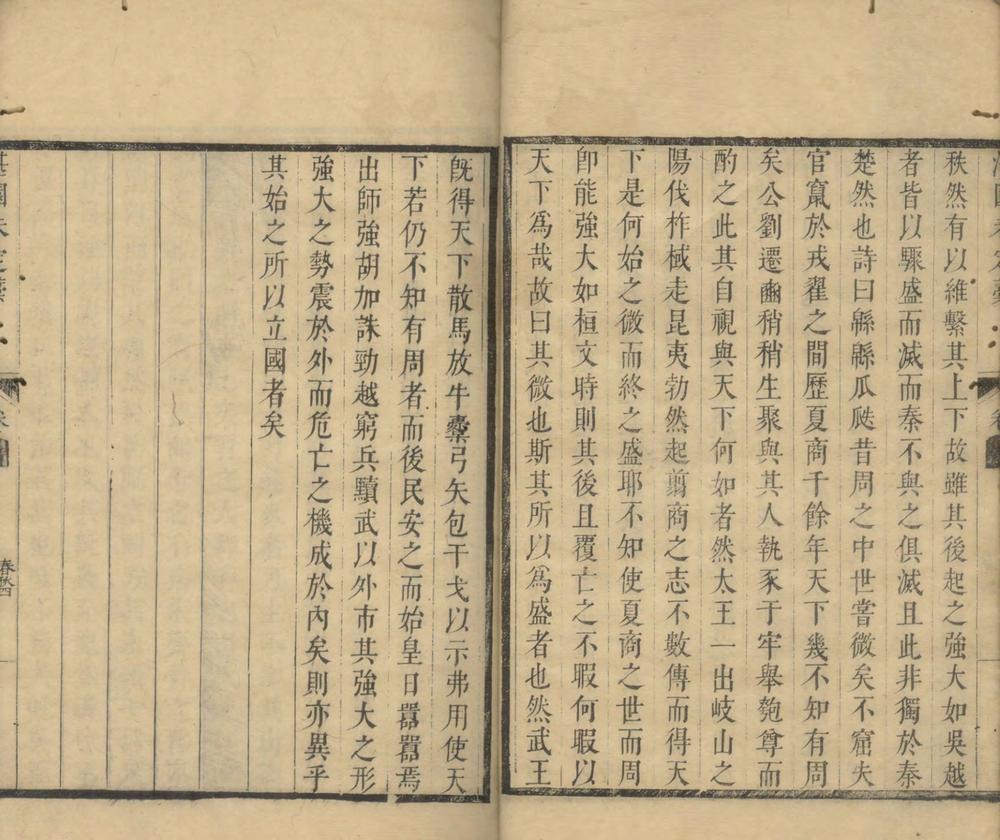 秩然有以維繫其上下故雖其後起之強大如吳越
者皆以驟盛而滅而秦不與之俱滅且此非獨於秦
楚然也詩曰緜緜瓜瓞昔周之中世嘗微矣不窋失
官竄於戎翟之間歷夏商千餘年天下幾不知有周
矣公劉遷豳稍稍生聚與其人執豕于牢舉匏尊而
酌之此其自視與天下何如者然太王一出岐山之
陽伐柞棫走昆夷勃然起翦商之志不數傳而得天
下是何始之微而終之盛耶不知使夏商之世而周
卽能強大如桓文時則其後且覆亡之不暇何暇以
天下爲哉故曰其微也斯其所以爲盛者也然武王
旣得天下散馬放牛櫜弓矢包干戈以示弗用使天
下若仍不知有周者而後民安之而始皇日囂囂焉
出師強胡加誅勁越窮兵黷武以外市其強大之形
強大之勢震於外而危亡之機成於內矣則亦異乎
其始之所以立國者矣